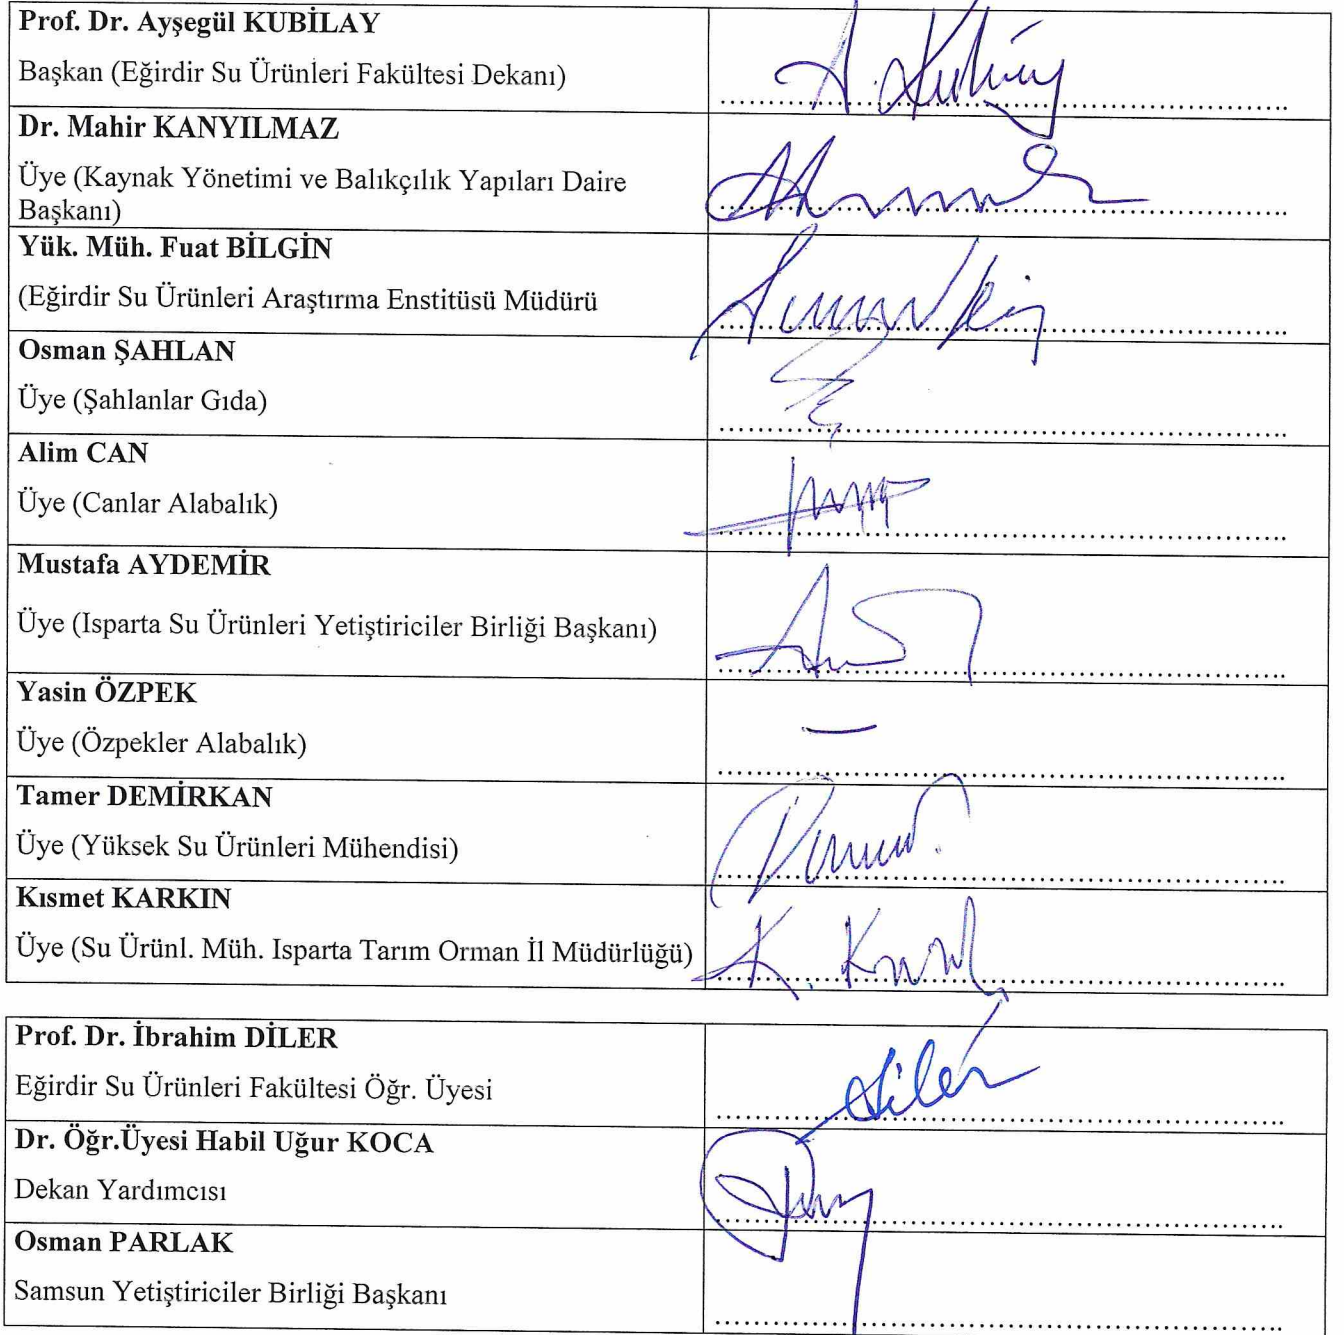 Prof. Dr. Ayşegül KUBİLAY
Başkan (Eğirdir Su Ürünleri Fakültesi Dekanı)
Dr. Mahir KANYILMAZ
Üye (Kaynak Yönetimi ve Balıkçılık Yapıları Daire
Başkanı)
Yük. Müh. Fuat BİLGİN
(Eğirdir Su Ürünleri Araştırma Enstitüsü Müdürü
Osman ŞAHLAN
Üye (Şahlanlar Gıda)
Alim CAN
Üye (Canlar Alabalık)
Mustafa AYDEMİR
Üye (Isparta Su Ürünleri Yetiştiriciler Birliği Başkanı)
Yasin ÖZPEK
Üye (Özpekler Alabalık)
Tamer DEMİRKAN
Üye (Yüksek Su Ürünleri Mühendisi)
Kısmet KARKIN
Üye (Su Ürünl. Müh. Isparta Tarım Orman İl Müdürlüğü)
Prof. Dr. İbrahim DİLER
Eğirdir Su Ürünleri Fakültesi Öğr. Üyesi
Dr. Öğr.Üyesi Habil Uğur KOCA
Dekan Yardımcısı
Osman PARLAK
Samsun Yetiştiriciler Birliği Başkanı